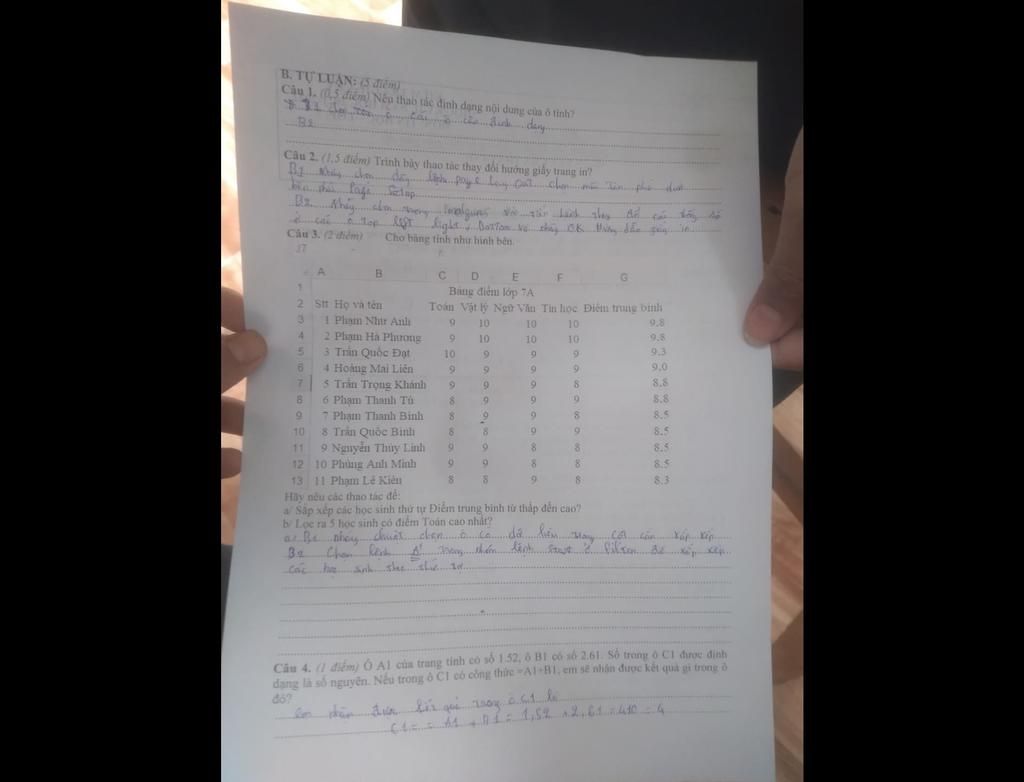 B. TỰ LUẬN: (5 điểm)
Câu 1. (0,5 điểm) Nêu thao tác định dạng nội dung của ô tính?
B1 ô cần định dạng
B2
Câu 2. (1,5 điểm) Trình bày thao tác thay đổi hướng giấy trang in?
B1 Nháy chọn dãy lệnh page lay out chọn
bên phải Page Setup
B2. Nháy chọn trong
ở các ô top left right, bottom và nháy OK in
Câu 3. (2 điểm) Cho bảng tính như hình bên.
A B C D E F G
1 Bảng điểm lớp 7A
2 Stt Họ và tên Toán Vật lý Ngữ Văn Tin học Điểm trung bình
3 1 Phạm Như Anh 9 10 10 10 9.8
4 2 Phạm Hà Phương 9 10 10 10 9.8
5 3 Trần Quốc Đạt 10 9 9 9 9.3
6 4 Hoàng Mai Liên 9 9 9 9 9.0
7 5 Trần Trọng Khánh 9 9 9 8 8.8
8 6 Phạm Thanh Tú 8 9 9 9 8.8
9 7 Phạm Thanh Bình 8 9 9 8 8.5
10 8 Trần Quốc Bình 8 8 9 9 8.5
11 9 Nguyễn Thùy Linh 9 9 8 8 8.5
12 10 Phùng Anh Minh 9 9 8 8 8.5
13 11 Phạm Lê Kiên 8 8 9 8 8.3
Hãy nêu các thao tác để:
a/ Sắp xếp các học sinh thứ tự Điểm trung bình từ thấp đến cao?
b/ Lọc ra 5 học sinh có điểm Toán cao nhất?
a) B1 nháy chuột chọn ô có dữ liệu trong cột cần xắp xếp
B2 Chọn lệnh trong nhóm lệnh để xắp xếp
các học sinh theo thứ tự
Câu 4. (1 điểm) Ô A1 của trang tính có số 1.52, ô B1 có số 2.61. Số trong ô C1 được định
dạng là số nguyên. Nếu trong ô C1 có công thức =A1+B1, em sẽ nhận được kết quả gì trong ô
đó?
em nhận được kết quả trong ô C1 là
C1 = = A1 + B1 = 1,52 + 2,61 = 410 = 4